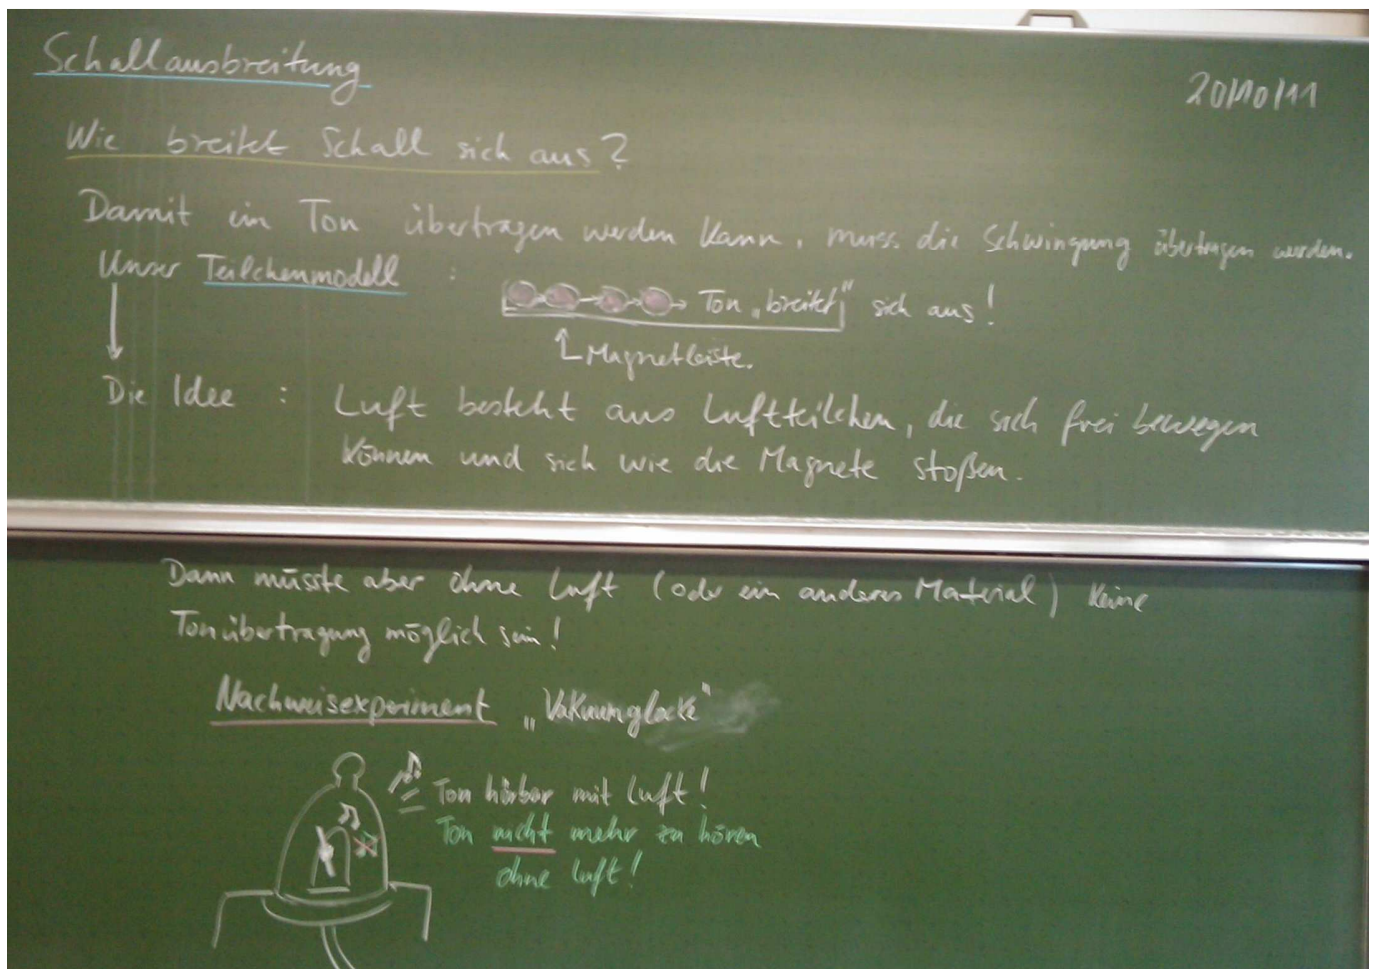 Schallausbreitung
20/10/11
Wie breitet Schall sich aus?
Damit ein Ton übertragen werden kann, muss die Schwingung übertragen werden.
Unser Teilchenmodell :
Ton „breitet“ sich aus!
Magnetleiste.
Die Idee : Luft besteht aus Luftteilchen, die sich frei bewegen
können und sich wie die Magnete stoßen.
Dann müsste aber ohne Luft (oder ein anderes Material) keine
Tonübertragung möglich sein!
Nachweisexperiment „Vakuumglocke“
Ton hörbar mit Luft!
Ton nicht mehr zu hören
ohne Luft!